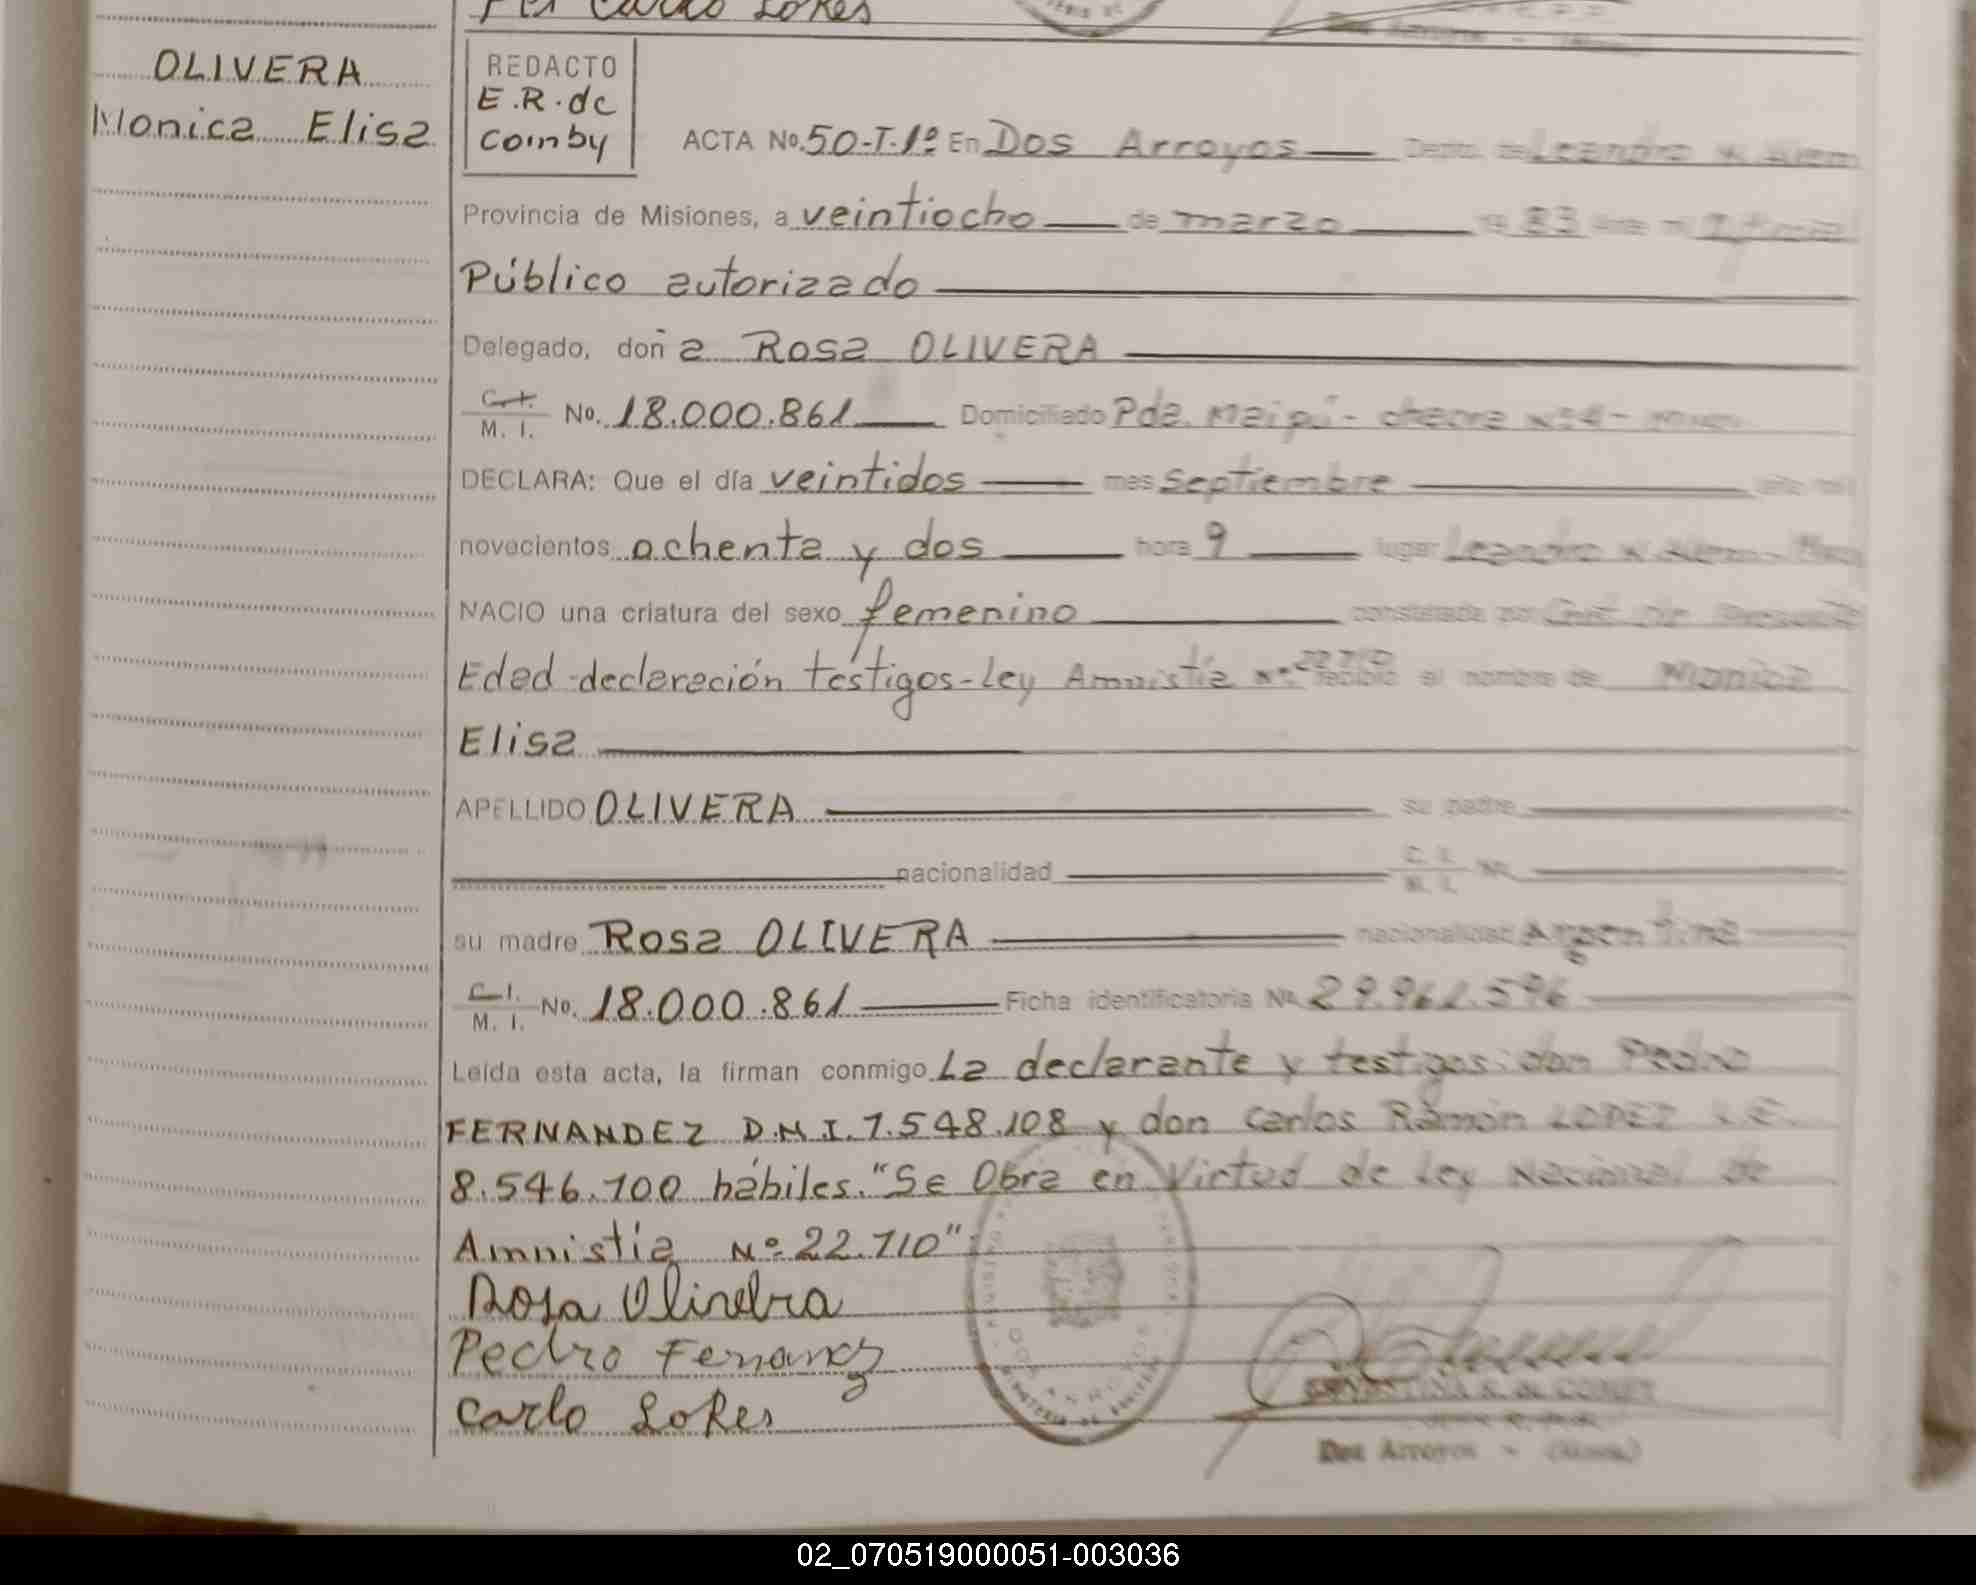 Per Carlo Lokes
OLIVERA
Monica Elisa
REDACTO
E.R. de
Coinby
ACTA No. 50-T.1º En Dos Arroyos Depto. de Leandro N. Alem
Provincia de Misiones, a veintiocho de marzo 19 83 ante mi
Público autorizado
Delegado, doña Rosa OLIVERA
C.I. M. I. No. 18.000.861 Domiciliado Pde. Maipú - chacra Nº4 -
DECLARA: Que el día veintidos mes septiembre año mil
novecientos ochenta y dos hora 9 lugar Leandro N. Alem -
NACIO una criatura del sexo femenino constatada por Cert. de
Edad - declaración testigos - Ley Amnistía Nº 22.710 recibió el nombre de Monica
Elisa
APELLIDO OLIVERA su padre
nacionalidad C. I. M. I. No.
su madre Rosa OLIVERA nacionalidad Argentina
C.I. M. I. No. 18.000.861 Ficha identificatoria No. 29.961.596
Leída esta acta, la firman conmigo La declarante y testigos: don Pedro
FERNANDEZ D.N.I. 7.548.108 y don Carlos Ramón LOPEZ L.E.
8.546.100 hábiles. "Se Obra en Virtud de Ley Nacional de
Amnistía Nº 22.710"
Rosa Olinebra
Pedro Fernandez
Carlo Lokes
Dos Arroyos - (Misiones)
02_070519000051-003036